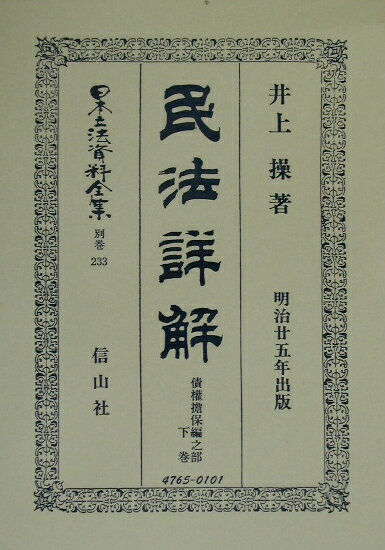 井上 操著
明治廿五年出版
民法詳解
債權擔保編之部
下巻
4765-0101
日本立法資料全集
別巻
233
信山社